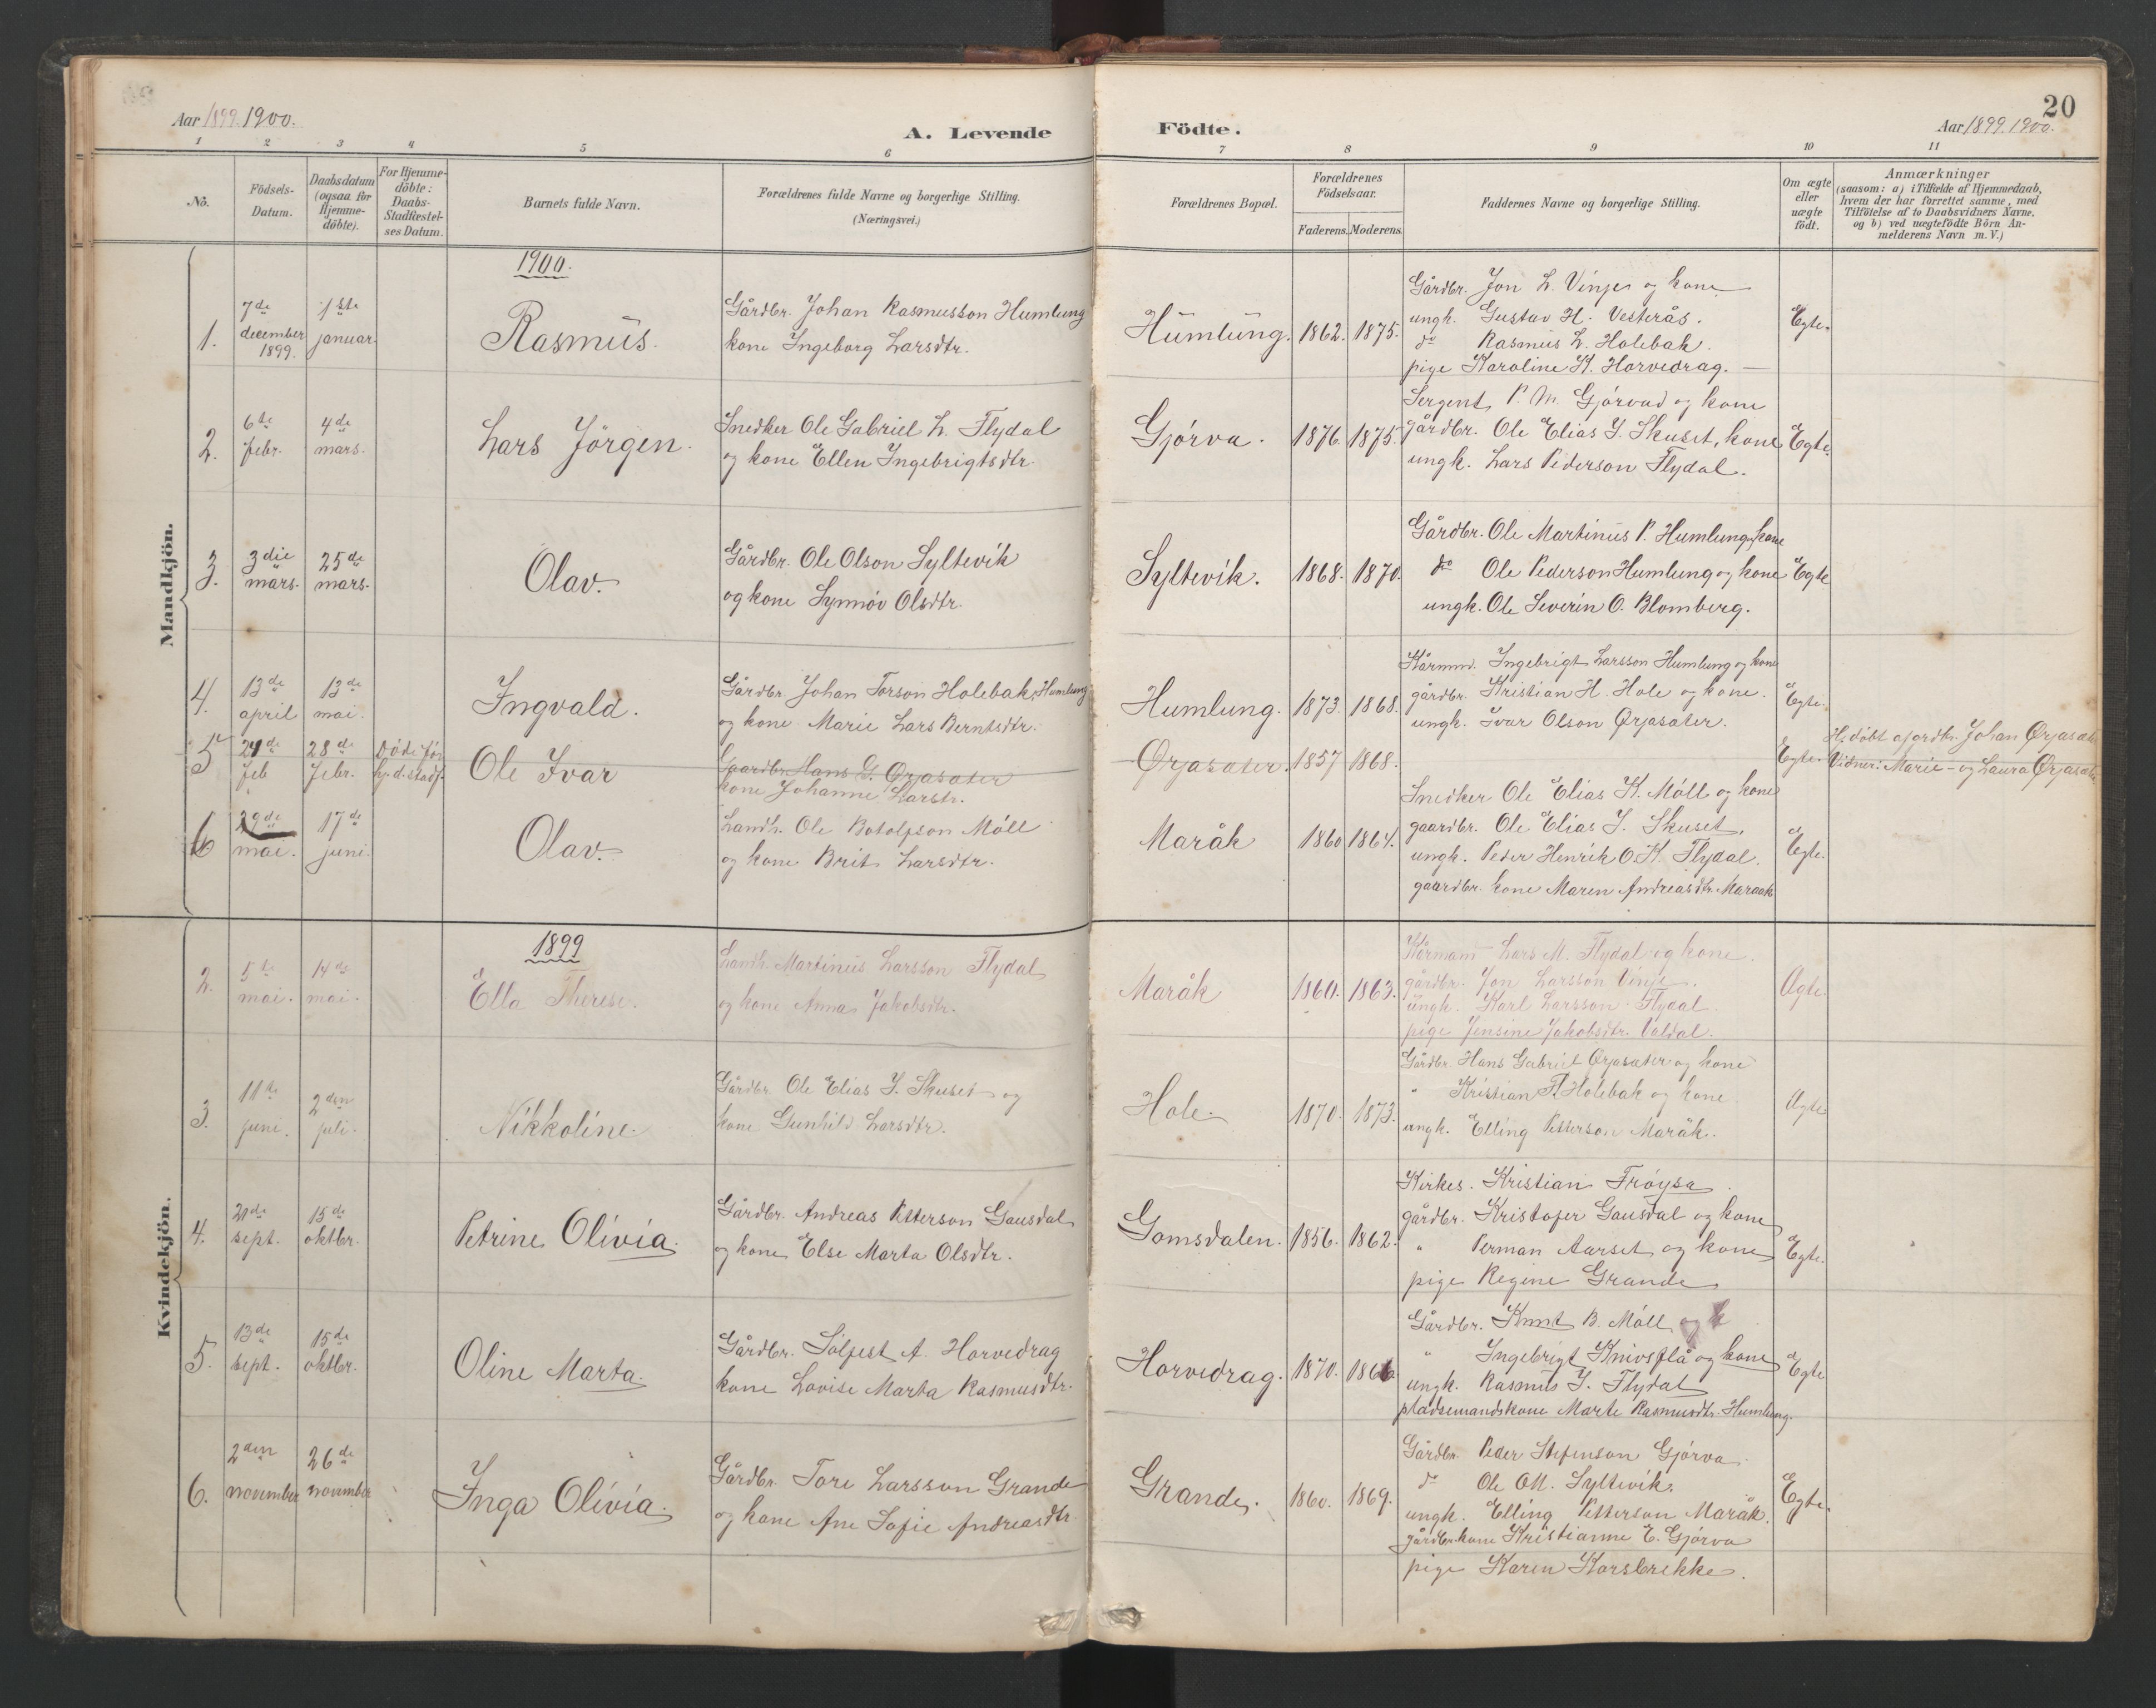 Aar 1899. 1900.
A. Levende
Födte.
Aar 1899. 1900.
20
1 2 3 4 5 6 7 8 9 10 11
No.
Födsels-Datum.
Daabsdatum (ogsaa for Hjemme-döbte).
For Hjemme-döbte: Daabs-Stadfæstel-ses Datum.
Barnets fulde Navn.
Forældrenes fulde Navne og borgerlige Stilling. (Næringsvei.)
Forældrenes Bopæl.
Forældrenes Födselsaar.
Faderens. Moderens.
Faddernes Navne og borgerlige Stilling.
Om ægte eller uægte födt.
Anmærkninger
(saasom: a) i Tilfælde af Hjemmedaab,
hvem der har forrettet samme, med
Tilföielse af to Daabsvidners Navne,
og b) ved uægtefödte Börn An-
melderens Navn m.V.)
Mandkjön.
1900.
1. 7de december 1899. 1ste januar. Rasmus.
Gårdbr. Johan Rasmusson Humlung
kone Ingeborg Larsdtr.
Humlung. 1862. 1875.
Gårdbr. Jon L. Vinje og kone
ungk. Gustav H. Vesterås.
do Rasmus L. Holebak.
pige Karoline K. Horvedrag.
Egte.
2. 6te febr. 4de mars. Lars Jörgen.
Snedker Ole Gabriel L. Flydal
og kone Ellen Ingebrigtsdtr.
Gjörva. 1876. 1875.
Sergent P. M. Gjörvad og kone
gårdbr. Ole Elias J. Skuset, kone
ungk. Lars Pederson Flydal.
Egte.
3. 3die mars. 25de mars. Olav.
Gårdbr. Ole Olson Syltevik
og kone Synnöv Olsdtr.
Syltevik. 1868. 1870.
Gårdbr. Ole Martinus P. Humlung, kone
do Ole Pederson Humlung og kone
ungk. Ole Severin O. Blomberg.
Egte
4. 13de april 13de mai. Ingvald.
Gårdbr. Johan Torson Holebak, Humlung
og kone Marie Lars Berntsdtr.
Humlung. 1873. 1868.
Kårmnd. Ingebrigt Larsson Humlung og kone
gårdbr. Kristian H. Hole og kone.
ungk. Ivar Olson Ørjasæter.
Egte.
5 24de Feb 28de Febr. Döde för hj.d. stadf. Ole Ivar
Gaardbr. Hans G. Ørjasæter
kone Johanne Larsdtr.
Ørjasæter. 1857 1868.
Egte.
H. döbt af grdbr. Johan Ørjasæter
Vidner: Marie og Laura Ørjasæter
6 29de mai. 17de juni. Olav.
Landh. Ole Botolfson Möll
og kone Brit Larsdtr.
Maråk 1860 1864.
Snedker Ole Elias K. Möll og kone
gaardbr. Ole Elias J. Skuset.
ungk. Peder Henrik O. K. Flydal.
gaardbr. kone Maren Andreasdtr. Maraak
Egte.
Kvindekjön.
1899
2. 5te mai. 14de mai. Ella Therese.
Landh. Martinus Larsson Flydal
og kone Anna Jakobsdtr.
Maråk 1860. 1863.
Kårmand Lars M. Flydal og kone.
gårdbr. Jon Larsson Vinje.
ungk. Karl Larsson Flydal.
pige Jensine Jakobsdtr. Valdal.
Ægte.
3. 11te juni. 2den juli. Nikkoline.
Gårdbr. Ole Elias J. Skuset og
kone Gunhild Larsdtr.
Hole. 1870. 1873.
Gårdbr. Hans Gabriel Ørjasæter og kone
" Kristian H. Holebak og kone
ungk. Elling Petterson Maråk.
Ægte
4. 21de sept. 15de oktbr. Petrine Olivia.
Gårdbr. Andreas Petterson Gausdal
og kone Else Marta Olsdtr.
Gomsdalen. 1856. 1862.
Kirkes. Kristian Fröysa.
gårdbr. Kristofer Gausdal og kone
" Perman Aarset og kone
pige Regine Grande
Egte.
5. 13de sept. 15de oktbr. Oline Marta.
Gårdbr. Sölfest A. Horvedrag
kone Lovise Marta Rasmusdtr.
Horvedrag. 1870. 1866.
Gårdbr. Knut B. Möll og k
" Ingebrigt Knivsflå og kone
ungk. Rasmus J. Flydal
pladsemandskone Marte Rasmusdtr. Humlung.
Egte
6. 2den november 26de november Inga Olivia.
Gårdbr. Tore Larsson Grande
og kone Ane Sofie Andreasdtr.
Grande. 1860. 1869.
Gårdbr. Peder Stefenson Gjörva.
do Ole Ott. Syltevik.
ungk. Elling Petterson Maråk.
gårdbr.kone Kristianne E. Gjörva
pige Karen Korsbrekke.
Egte.